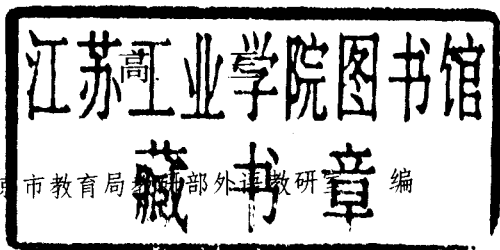 江苏工业学院图书馆
高三
藏书章
京市教育局教研部外语教研室 编